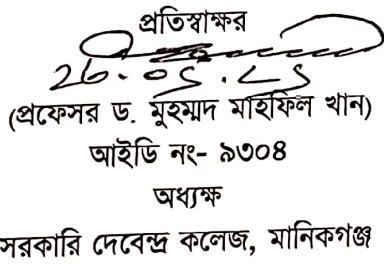 প্রতিস্বাক্ষর
(প্রফেসর ড. মুহম্মদ মাহফিল খান)
আইডি নং- ৯৩০৪
অধ্যক্ষ
সরকারি দেবেন্দ্র কলেজ, মানিকগঞ্জ